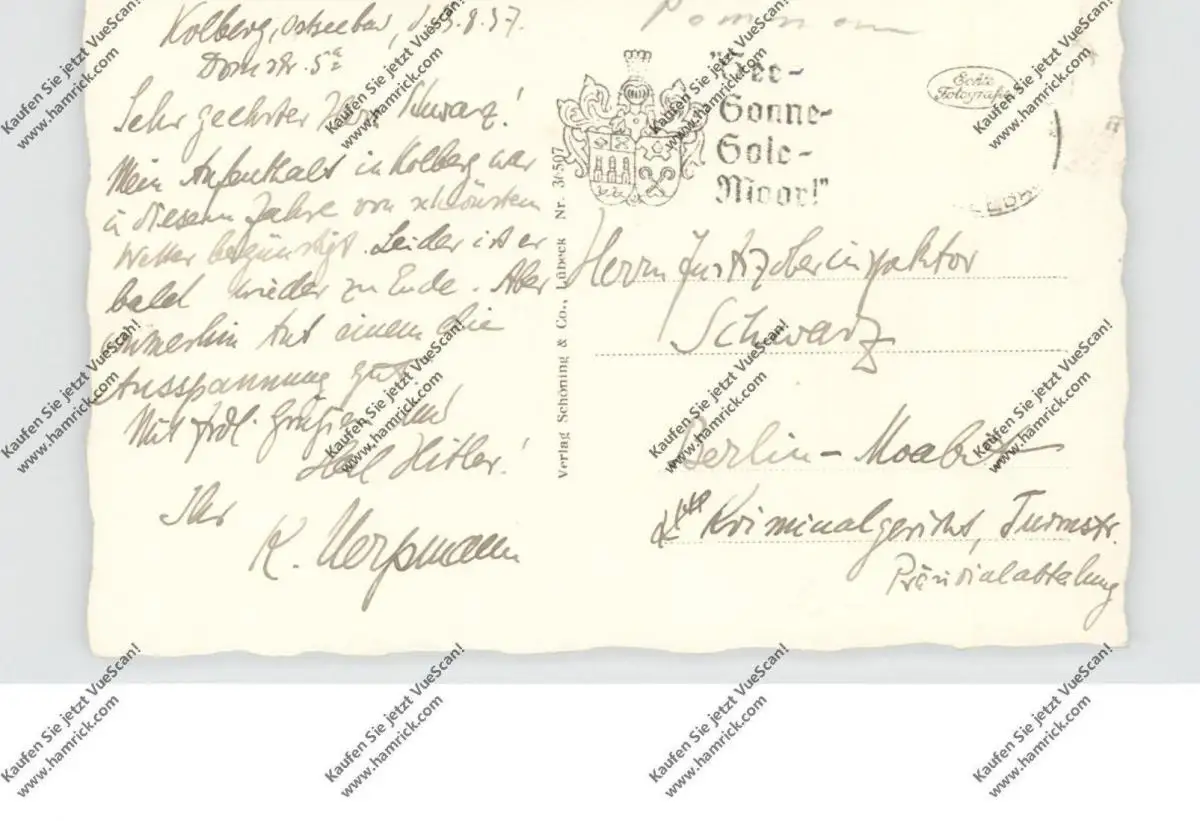 Pommern
Kolberg, Ostseebad, d. 8.37.
Domstr. 5a
Sehr geehrter Herr Schwarz!
Mein Aufenthalt in Kolberg war
in diesem Jahre vom schönsten
Wetter begünstigt. Leider ist er
bald wieder zu Ende. Aber
immerhin tut einem die
Ausspannung gut.
Mit frdl. Grüßen und
Heil Hitler!
Ihr
K.
"See-
Sonne-
Sole-
Moor!"
Echte
Fotografie
Verlag Schöning & Co., Lübeck Nr. 36507
Herrn Justizoberinspektor
Schwarz
Berlin-Moabit
Kriminalgericht, Turmstr.
Präsidialabteilung
Kaufen Sie jetzt VueScan!
www.hamrick.com
Kaufen Sie jetzt VueScan!
www.hamrick.com
Kaufen Sie jetzt VueScan!
www.hamrick.com
Kaufen Sie jetzt VueScan!
www.hamrick.com
Kaufen Sie jetzt VueScan!
www.hamrick.com
Kaufen Sie jetzt VueScan!
www.hamrick.com
Kaufen Sie jetzt VueScan!
www.hamrick.com
Kaufen Sie jetzt VueScan!
www.hamrick.com
Kaufen Sie jetzt VueScan!
www.hamrick.com
Kaufen Sie jetzt VueScan!
www.hamrick.com
Kaufen Sie jetzt VueScan!
www.hamrick.com
Kaufen Sie jetzt VueScan!
www.hamrick.com